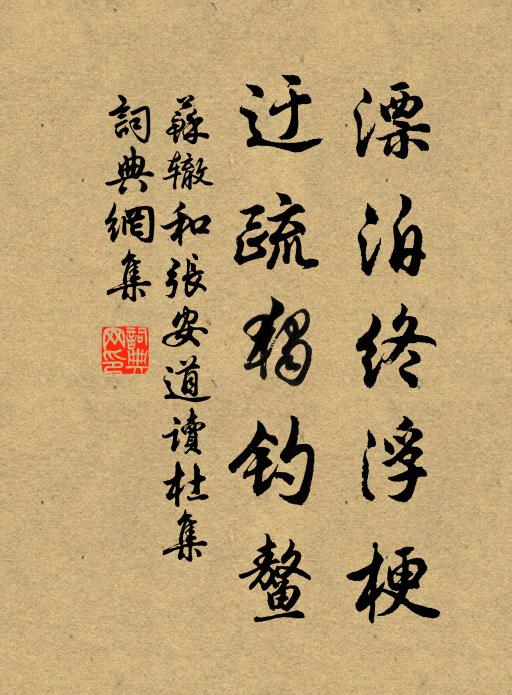 漂泊終浮梗
迂疏獨釣鰲
蘇轍和張安道讀杜集
詞典網集
詞典網印